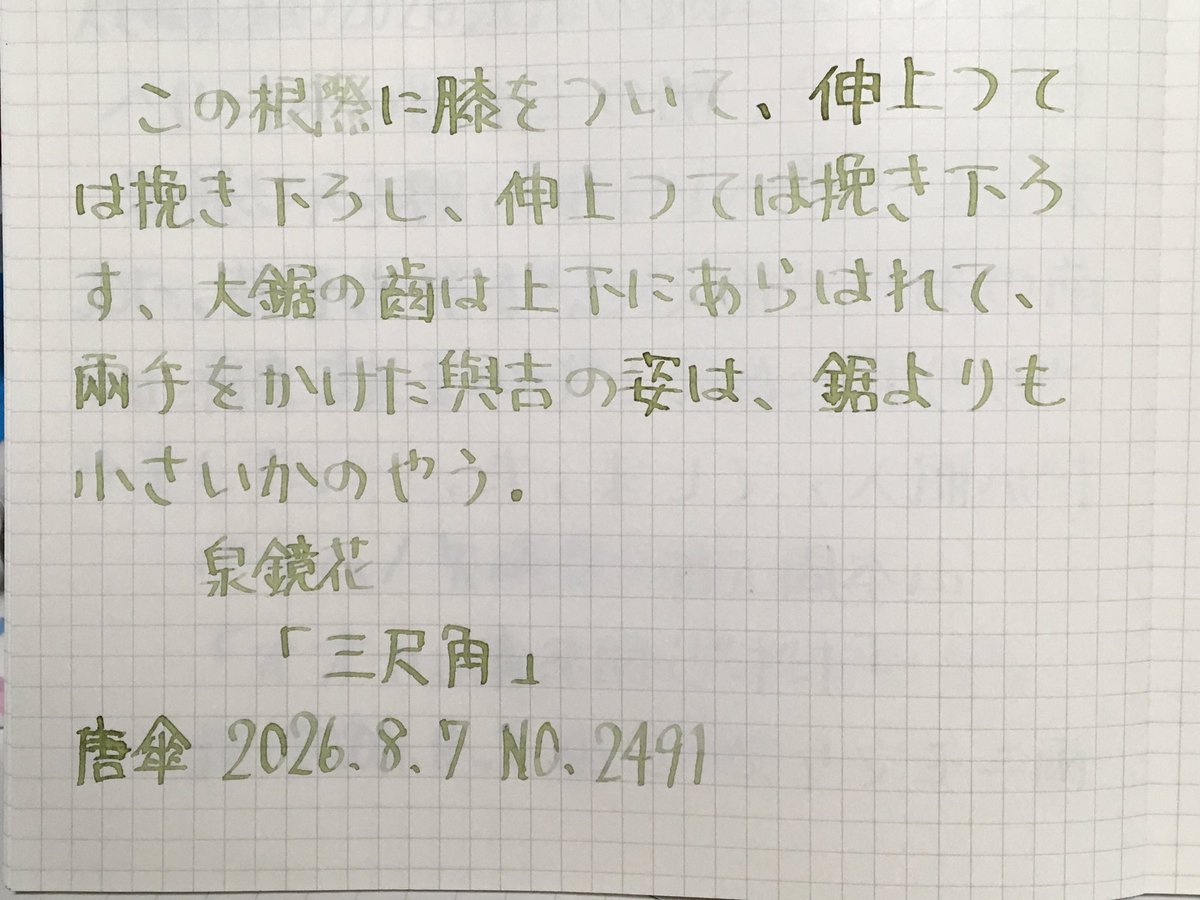 この根際に膝をついて、伸上つて
は挽き下ろし、伸上つては挽き下ろ
す、大鋸の歯は上下にあらはれて、
兩手をかけた與吉の姿は、鋸よりも
小さいかのやう.
泉鏡花
「三尺角」
唐傘 2026.8.7 NO.2491